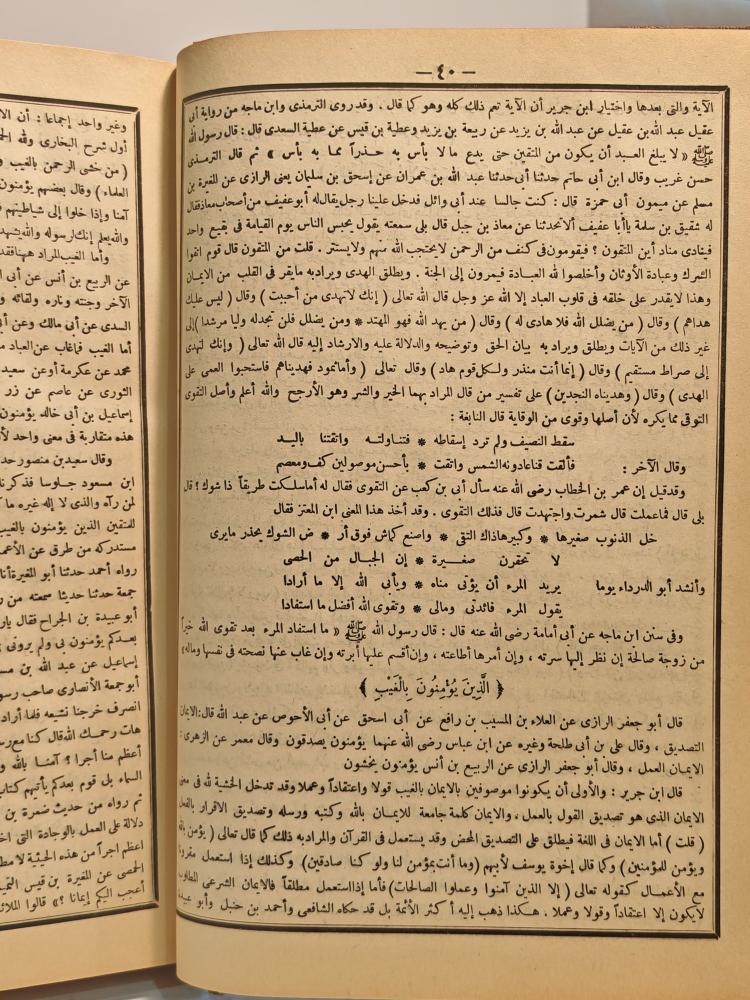 — ٤٠ —
الآية والتى بعدها واختيار ابن جرير أن الآية تعم ذلك كله وهو كما قال . وقد روى الترمذى وابن ماجه من رواية أبى
عقيل عبد الله بن عقيل عن عبد الله بن يزيد عن ربيعة بن يزيد وعطية بن قيس عن عطية السعدى قال : قال رسول الله
ﷺ « لا يبلغ العبد أن يكون من المتقين حتى يدع ما لا بأس به حذراً مما به بأس » ثم قال الترمذى
حسن غريب وقال ابن أبى حاتم حدثنا أبى حدثنا عبد الله بن عمران عن إسحق بن سلمان يعنى الرازى عن المغيرة بن
مسلم عن ميمون أبى حمزة قال : كنت جالسا عند أبى وائل فدخل علينا رجل يقال له أبو عفيف من أصحاب معاذ فقال
له شقيق بن سلمة يا أبا عفيف ألا تحدثنا عن معاذ بن جبل قال بلى سمعته يقول يحبس الناس يوم القيامة فى بقيع واحد
فينادى مناد أين المتقون ؟ فيقومون فى كنف من الرحمن لا يحتجب الله منهم ولا يستتر . قلت من المتقون قال قوم اتقوا
الشرك وعبادة الأوثان وأخلصوا لله العبادة فيمرون إلى الجنة . ويطلق الهدى ويراد به ما يقر فى القلب من الايمان
وهذا لا يقدر على خلقه فى قلوب العباد إلا الله عز وجل قال الله تعالى ( إنك لا تهدى من أحببت ) وقال ( ليس عليك
هداهم ) وقال ( من يضلل الله فلا هادى له ) وقال ( من يهد الله فهو المهتد * ومن يضلل فلن تجد له وليا مرشدا ) إلى
غير ذلك من الآيات ويطلق ويراد به بيان الحق وتوضيحه والدلالة عليه والارشاد إليه قال الله تعالى ( وإنك لتهدى
إلى صراط مستقيم ) وقال ( إنما أنت منذر ولكل قوم هاد ) وقال تعالى ( وأما ثمود فهديناهم فاستحبوا العمى على
الهدى ) وقال ( وهديناه النجدين ) على تفسير من قال المراد بهما الخير والشر وهو الأرجح والله أعلم وأصل التقوى
التوقى مما يكره لأن أصلها وقوى من الوقاية قال النابغة :
سقط النصيف ولم ترد إسقاطه * فتناولته واتقتنا باليد
وقال الآخر : فألقت قناعا دونه الشمس واتقت * بأحسن موصولين كف ومعصم
وقد قيل إن عمر بن الخطاب رضى الله عنه سأل أبى بن كعب عن التقوى فقال له أما سلكت طريقاً ذا شوك ؟ قال
بلى قال فما عملت قال شمرت واجتهدت قال فذلك التقوى . وقد أخذ هذا المعنى ابن المعتز فقال
خل الذنوب صغيرها * وكبيرها ذاك التقى * واصنع كماش فوق أر * ض الشوك يحذر ما يرى
لا تحقرن صغيرة * إن الجبال من الحصى
وأنشد أبو الدرداء يوما يريد المرء أن يؤتى مناه * ويأبى الله إلا ما أرادا
يقول المرء فائدتى ومالى * وتقوى الله أفضل ما استفادا
وفى سنن ابن ماجه عن أبى أمامة رضى الله عنه قال : قال رسول الله ﷺ « ما استفاد المرء بعد تقوى الله خيراً
من زوجة صالحة إن نظر إليها سرته ، وإن أمرها أطاعته ، وإن أقسم عليها أبرته وإن غاب عنها نصحته فى نفسها وماله »
﴿ الَّذِينَ يُؤْمِنُونَ بِالْغَيْبِ ﴾
قال أبو جعفر الرازى عن العلاء بن المسيب بن رافع عن أبى اسحق عن أبى الأحوص عن عبد الله قال : الايمان
التصديق ، وقال على بن أبى طلحة وغيره عن ابن عباس رضى الله عنهما يؤمنون يصدقون وقال معمر عن الزهرى :
الايمان العمل ، وقال أبو جعفر الرازى عن الربيع بن أنس يؤمنون يخشون
قال ابن جرير : والأولى أن يكونوا موصوفين بالايمان بالغيب قولا واعتقاداً وعملا وقد تدخل الخشية لله فى معنى
الايمان الذى هو تصديق القول بالعمل ، والايمان كلمة جامعة للايمان بالله وكتبه ورسله وتصديق الاقرار بالفعل
( قلت ) أما الايمان فى اللغة فيطلق على التصديق المحض وقد يستعمل فى القرآن والمراد به ذلك كما قال تعالى ( يؤمن بالله
ويؤمن للمؤمنين ) وكما قال إخوة يوسف لأبيهم ( وما أنت بمؤمن لنا ولو كنا صادقين ) وكذلك إذا استعمل مقرونا
مع الأعمال كقوله تعالى ( إلا الذين آمنوا وعملوا الصالحات ) فأما إذا استعمل مطلقاً فالايمان الشرعى المطلوب
لا يكون إلا اعتقاداً وقولا وعملا . هكذا ذهب إليه أكثر الأئمة بل قد حكاه الشافعى وأحمد بن حنبل وأبو عبيدة
وغير واحد إجماعا : أن الا
أول شرح البخارى ولله الح
( من خشى الرحمن بالغيب و
العلماء ) وقال بعضهم يؤمنون
آمنا وإذا خلوا إلى شياطينهم
والله يعلم إنك لرسوله والله يشهد
وأما الغيب المراد ههنا فقد
عن الربيع بن أنس عن أبى ا
الآخر وجنته وناره ولقائه و
السدى عن أبى مالك وعن أبى
أما الغيب فما غاب عن العباد م
محمد عن عكرمة أو عن سعيد
الثورى عن عاصم عن زر
إسماعيل بن أبى خالد يؤمنون
هذه متقاربة فى معنى واحد لأ
وقال سعيد بن منصور حد
ابن مسعود جلوسا فذكرنا
لمن رآه والذى لا إله غيره ما
للمتقين الذين يؤمنون بالغيب
مستدركه من طرق عن الأعم
رواه أحمد حدثنا أبو المغيرة أنا
جمعة حدثنا حديثا سمعته من ر
أبو عبيدة بن الجراح فقال يار
بعدكم يؤمنون بى ولم يرونى
إسماعيل عن عبد الله بن مس
أبو جمعة الأنصارى صاحب رسو
انصرف خرجنا نشيعه فلما أراد
هات رحمك الله قال كنا مع رسو
أعظم منا أجرا ؟ آمنا بالله و
السماء بل قوم بعدكم يأتيهم كتاب
ثم رواه من حديث ضمرة بن
دلالة على العمل بالوجادة التى اخ
أعظم أجرا من هذه الحيثية لا مط
الحمصى عن المغيرة بن قيس التمي
أعجب إليكم إيمانا ؟ » قالوا الملائ